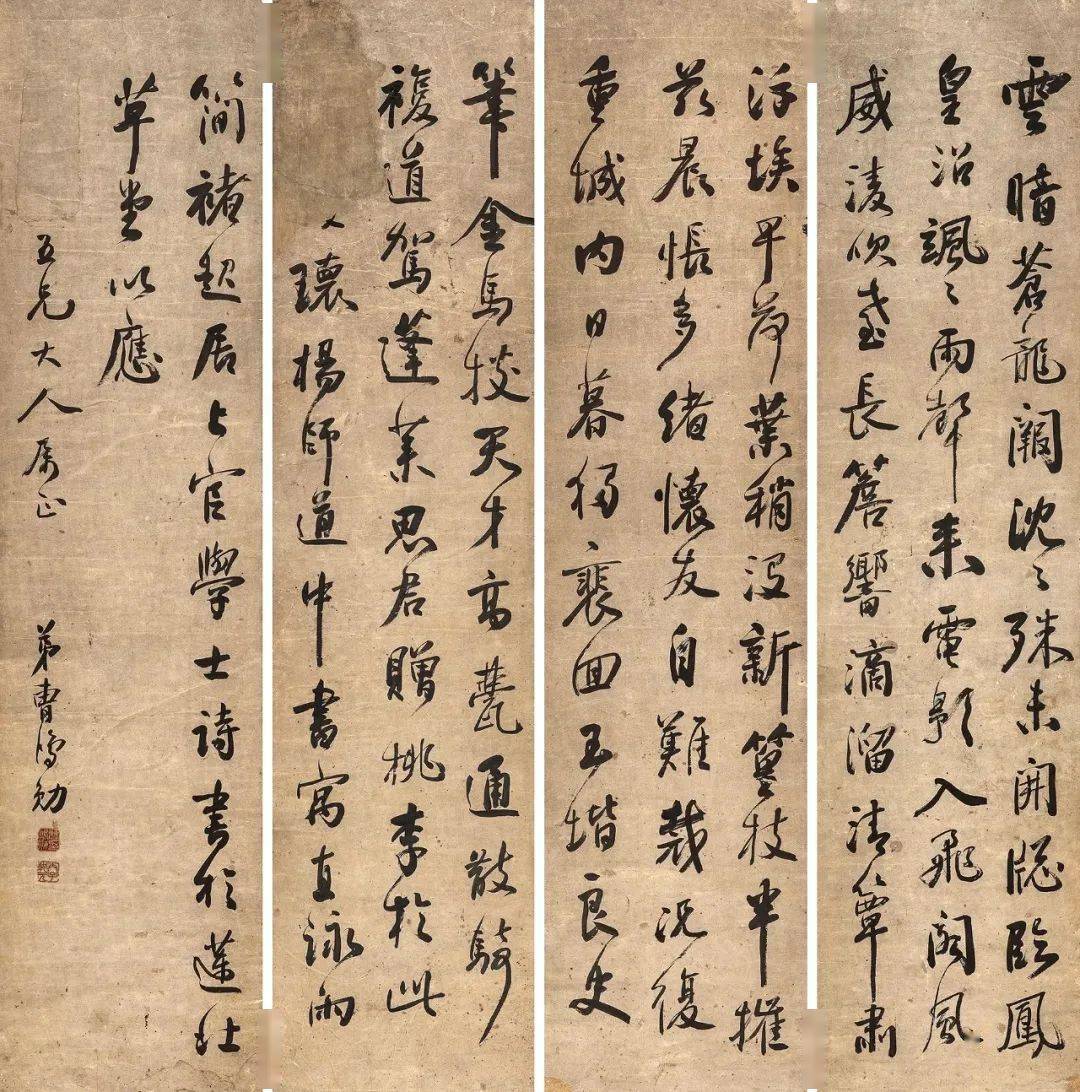 雲暗蒼龍闕沈〻殊未開牕臨鳳
皇沼颯〻雨聲來電影入飛閣風
威淩吹臺長簷響滴溜清簟肅
浮埃早荷葉稍沒新篁枝半摧
茲晨悵多緒懷友自難裁況復
重城內日暮獨裴回玉堦良史
筆金馬掞天才高甍通散騎
複道駕蓬萊思君贈桃李於此
瓌楊師道中書寓直詠雨
簡褚起居上官學士詩書於蓮社
草堂以應
五兄大人屬正 弟曹鴻勛